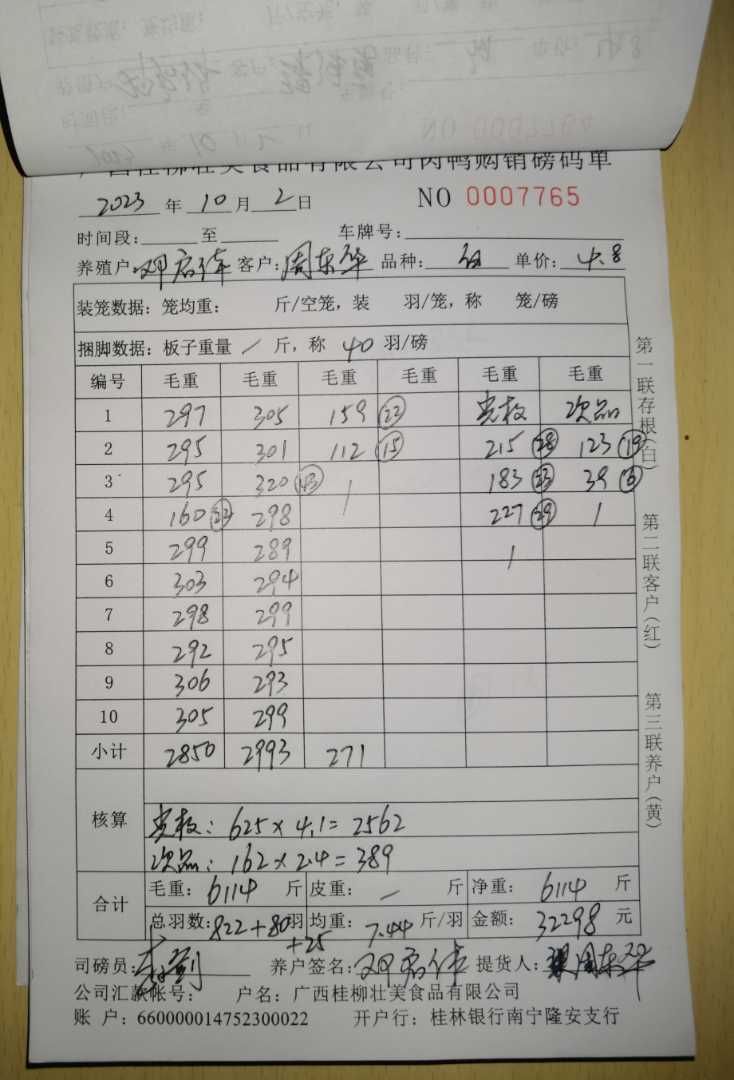 NO 0007764
广西桂柳壮美食品有限公司肉鸭购销磅码单
2023 年 10 月 2 日 NO 0007765
时间段: 至 车牌号:
养殖户 邓启伟 客户: 周东华 品种: 单价: 4.8
装笼数据: 笼均重: 斤/空笼, 装 羽/笼, 称 笼/磅
捆脚数据: 板子重量 / 斤, 称 40 羽/磅
编号 毛重 毛重 毛重 毛重 毛重 毛重
1 297 305 159 22 次品
2 295 301 112 15 215 28 123 19
3 295 320 43 183 23 39 6
4 160 23 298 227 29
5 299 289
6 303 294
7 298 299
8 292 295
9 306 293
10 305 299
小计 2850 2993 271
核算
625×4.1=2562
次品: 162×2.4=389
合计 毛重: 6114 斤 皮重: / 斤 净重: 6114 斤
总羽数: 822+80羽 +25 均重: 7.44 斤/羽 金额: 32298 元
司磅员: 养户签名: 邓启伟 提货人: 周东华
公司汇款帐号: 户名: 广西桂柳壮美食品有限公司
账 户: 660000014752300022 开户行: 桂林银行南宁隆安支行
第一联存根(白)
第二联客户(红)
第三联养户(黄)